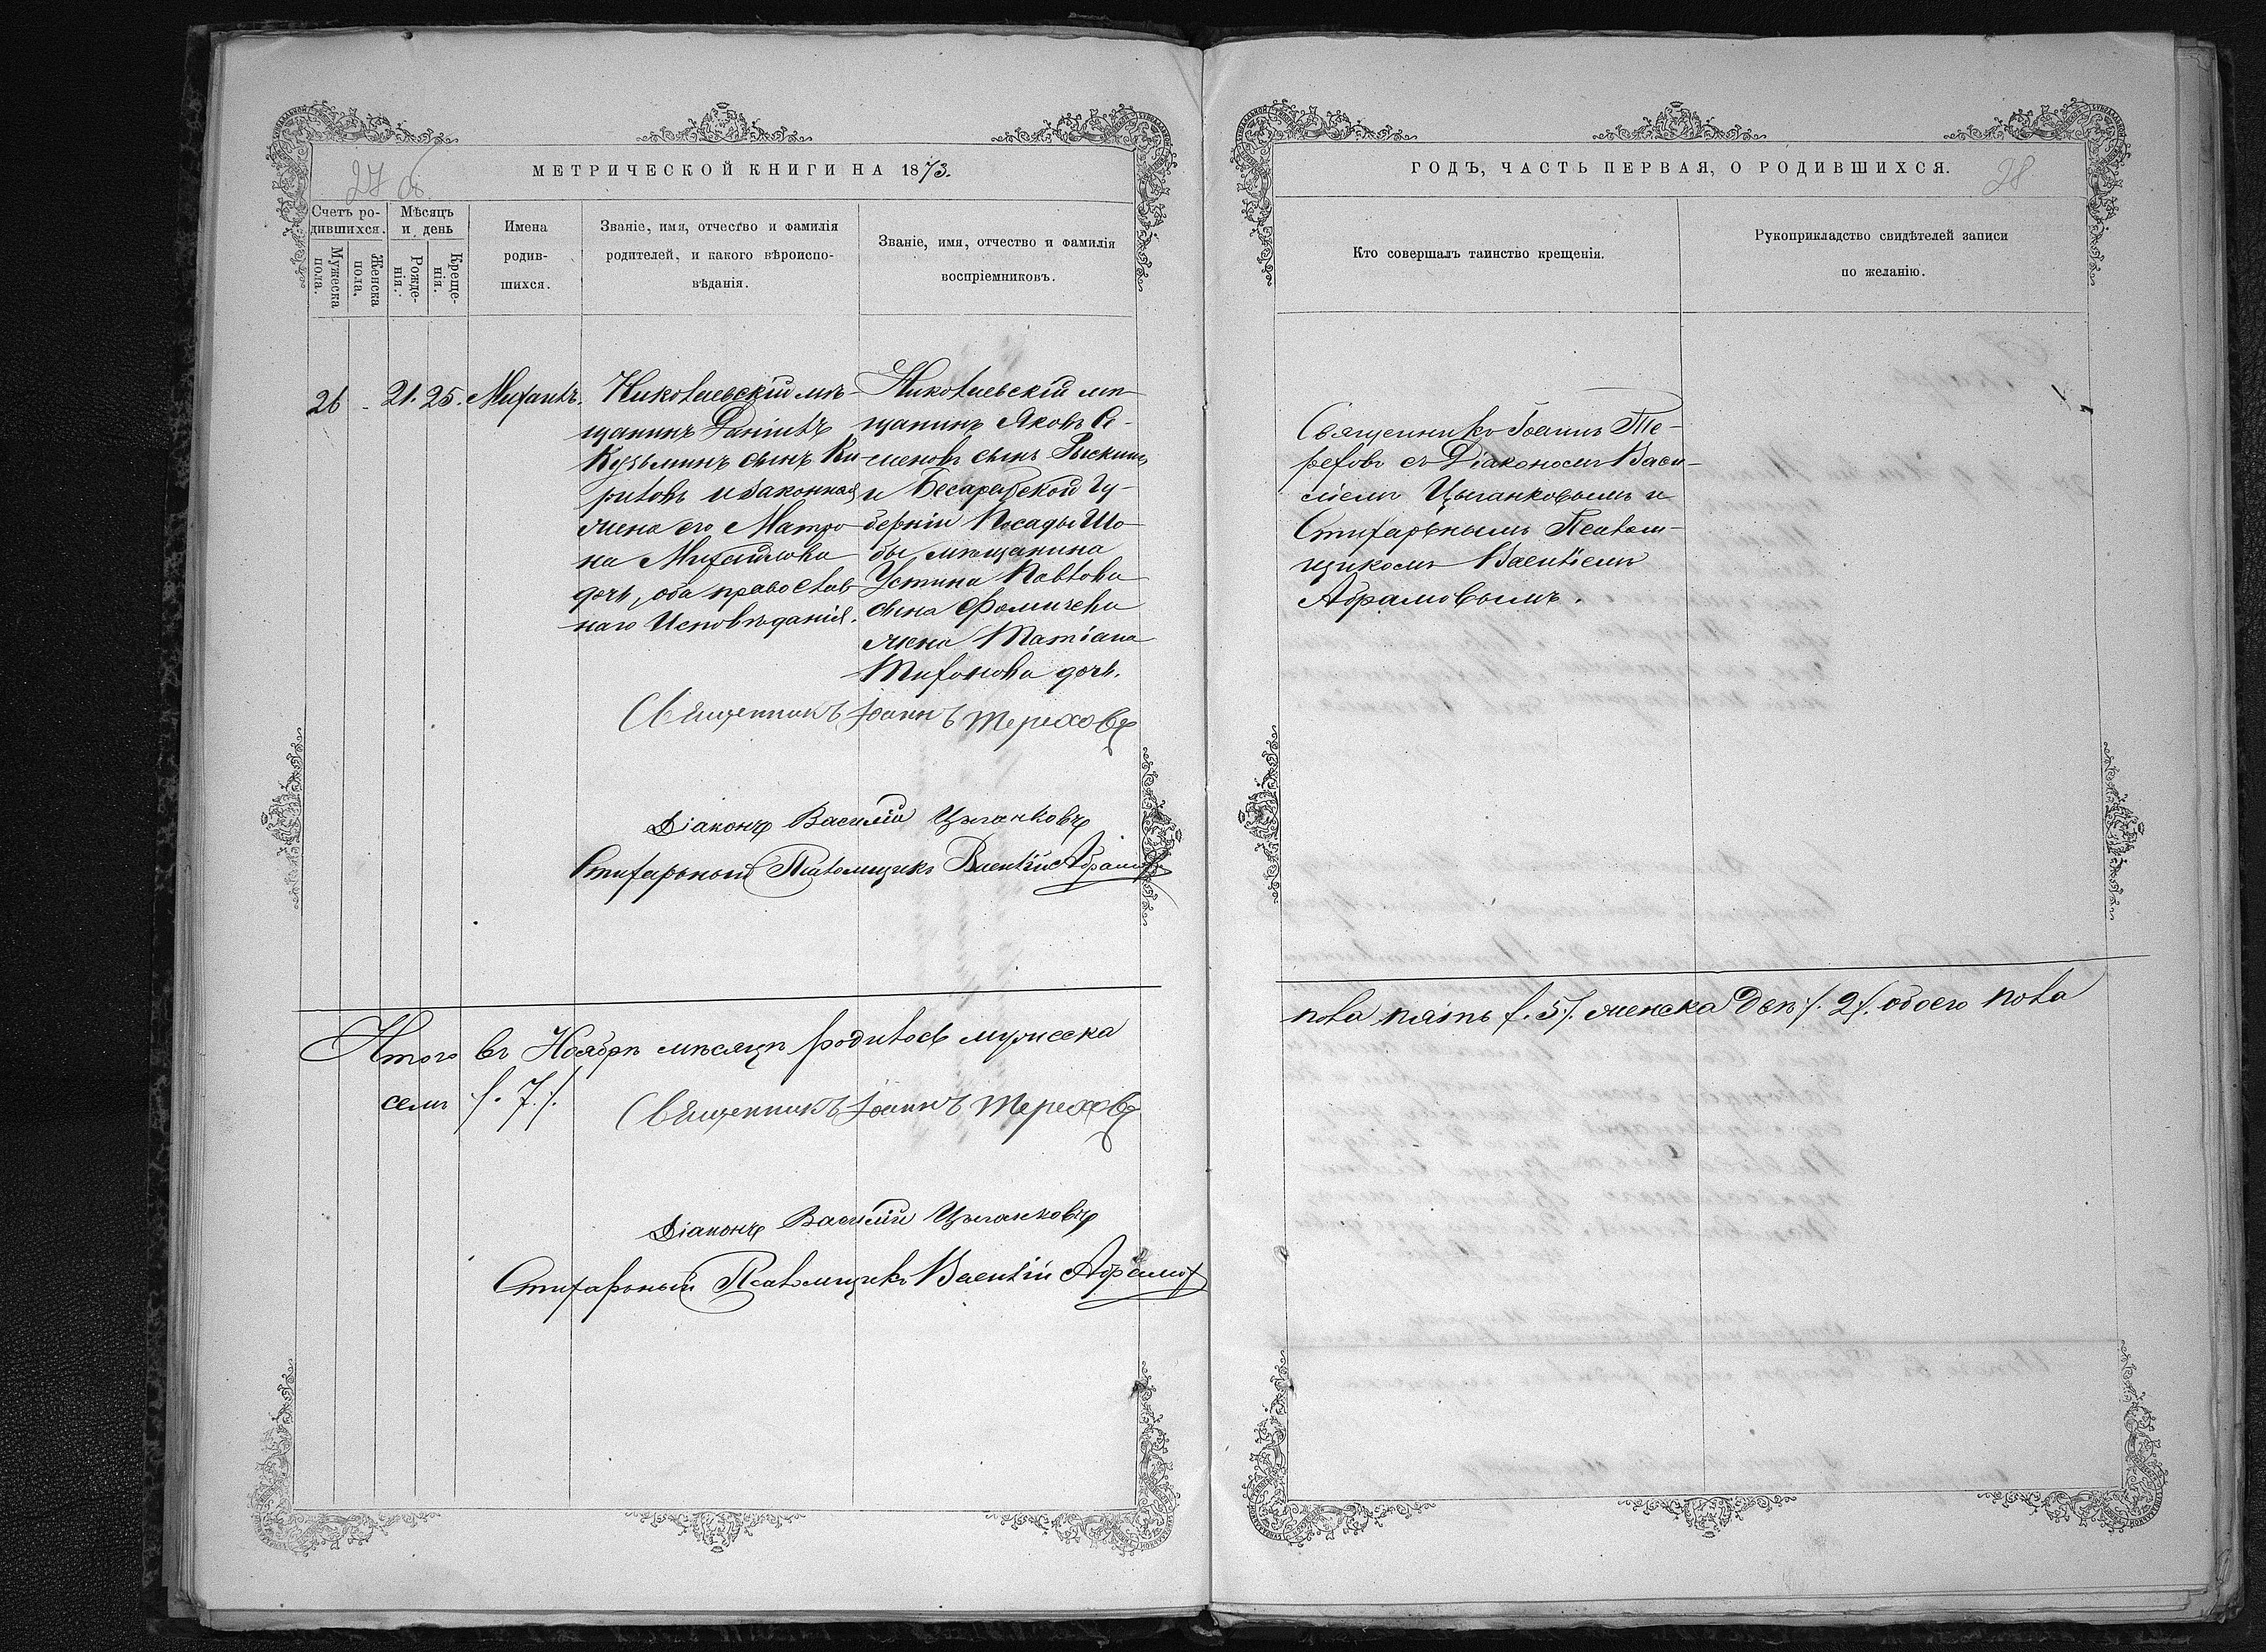 27 об.
МЕТРИЧЕСКОЙ КНИГИ НА 1873.
Счетъ ро-
дившихся.
Мужеска
пола.
Женска
пола.
Мѣсяцъ
и день
Рожде-
нія.
Креще-
нія.
Имена
родив-
шихся.
Званіе, имя, отчество и фамилія
родителей, и какого вѣроиспо-
вѣданія.
Званіе, имя, отчество и фамилія
воспріемниковъ.
26 - 21. 25. Михаилъ.
Николаевскій мѣ-
щанинъ Даніилъ
Кузьминъ сынъ Ки-
риловъ и законная
жена его Матро-
на Михайлова
дочь, оба православ-
наго Исповѣданія.
Николаевскій мѣ-
щанинъ Яковъ Се-
меновъ сынъ
и Бесарабской Гу-
берніи Посады Шо-
бы мѣщанина
Устина Павлова
сына Фомичева
жена Татіана
Тифонова дочь.
Священникъ Іоаннъ Тереховъ
Діаконъ Василій Цыганковъ
Стихарный Псаломщикъ Васили́й Абрамов
Итого въ Ноябрѣ мѣсяцѣ родилось мужеска
семь /. 7./.
Священникъ Іоаннъ Тереховъ
Діаконъ Василій Цыганковъ
Стихарный Псаломщикъ Василій Абрамов
ГОДЪ, ЧАСТЬ ПЕРВАЯ, О РОДИВШИХСЯ.
28
Кто совершалъ таинство крещенія.
Рукоприкладство свидѣтелей записи
по желанію.
Священникъ Іоаннъ Те-
реховъ съ Діакономъ Васи-
ліемъ Цыганковымъ и
Стихарнымъ Псалом-
щикомъ Василіемъ
Абрамовымъ.
пола пять /. 5/. женска двѣ /. 2/. обоего пола